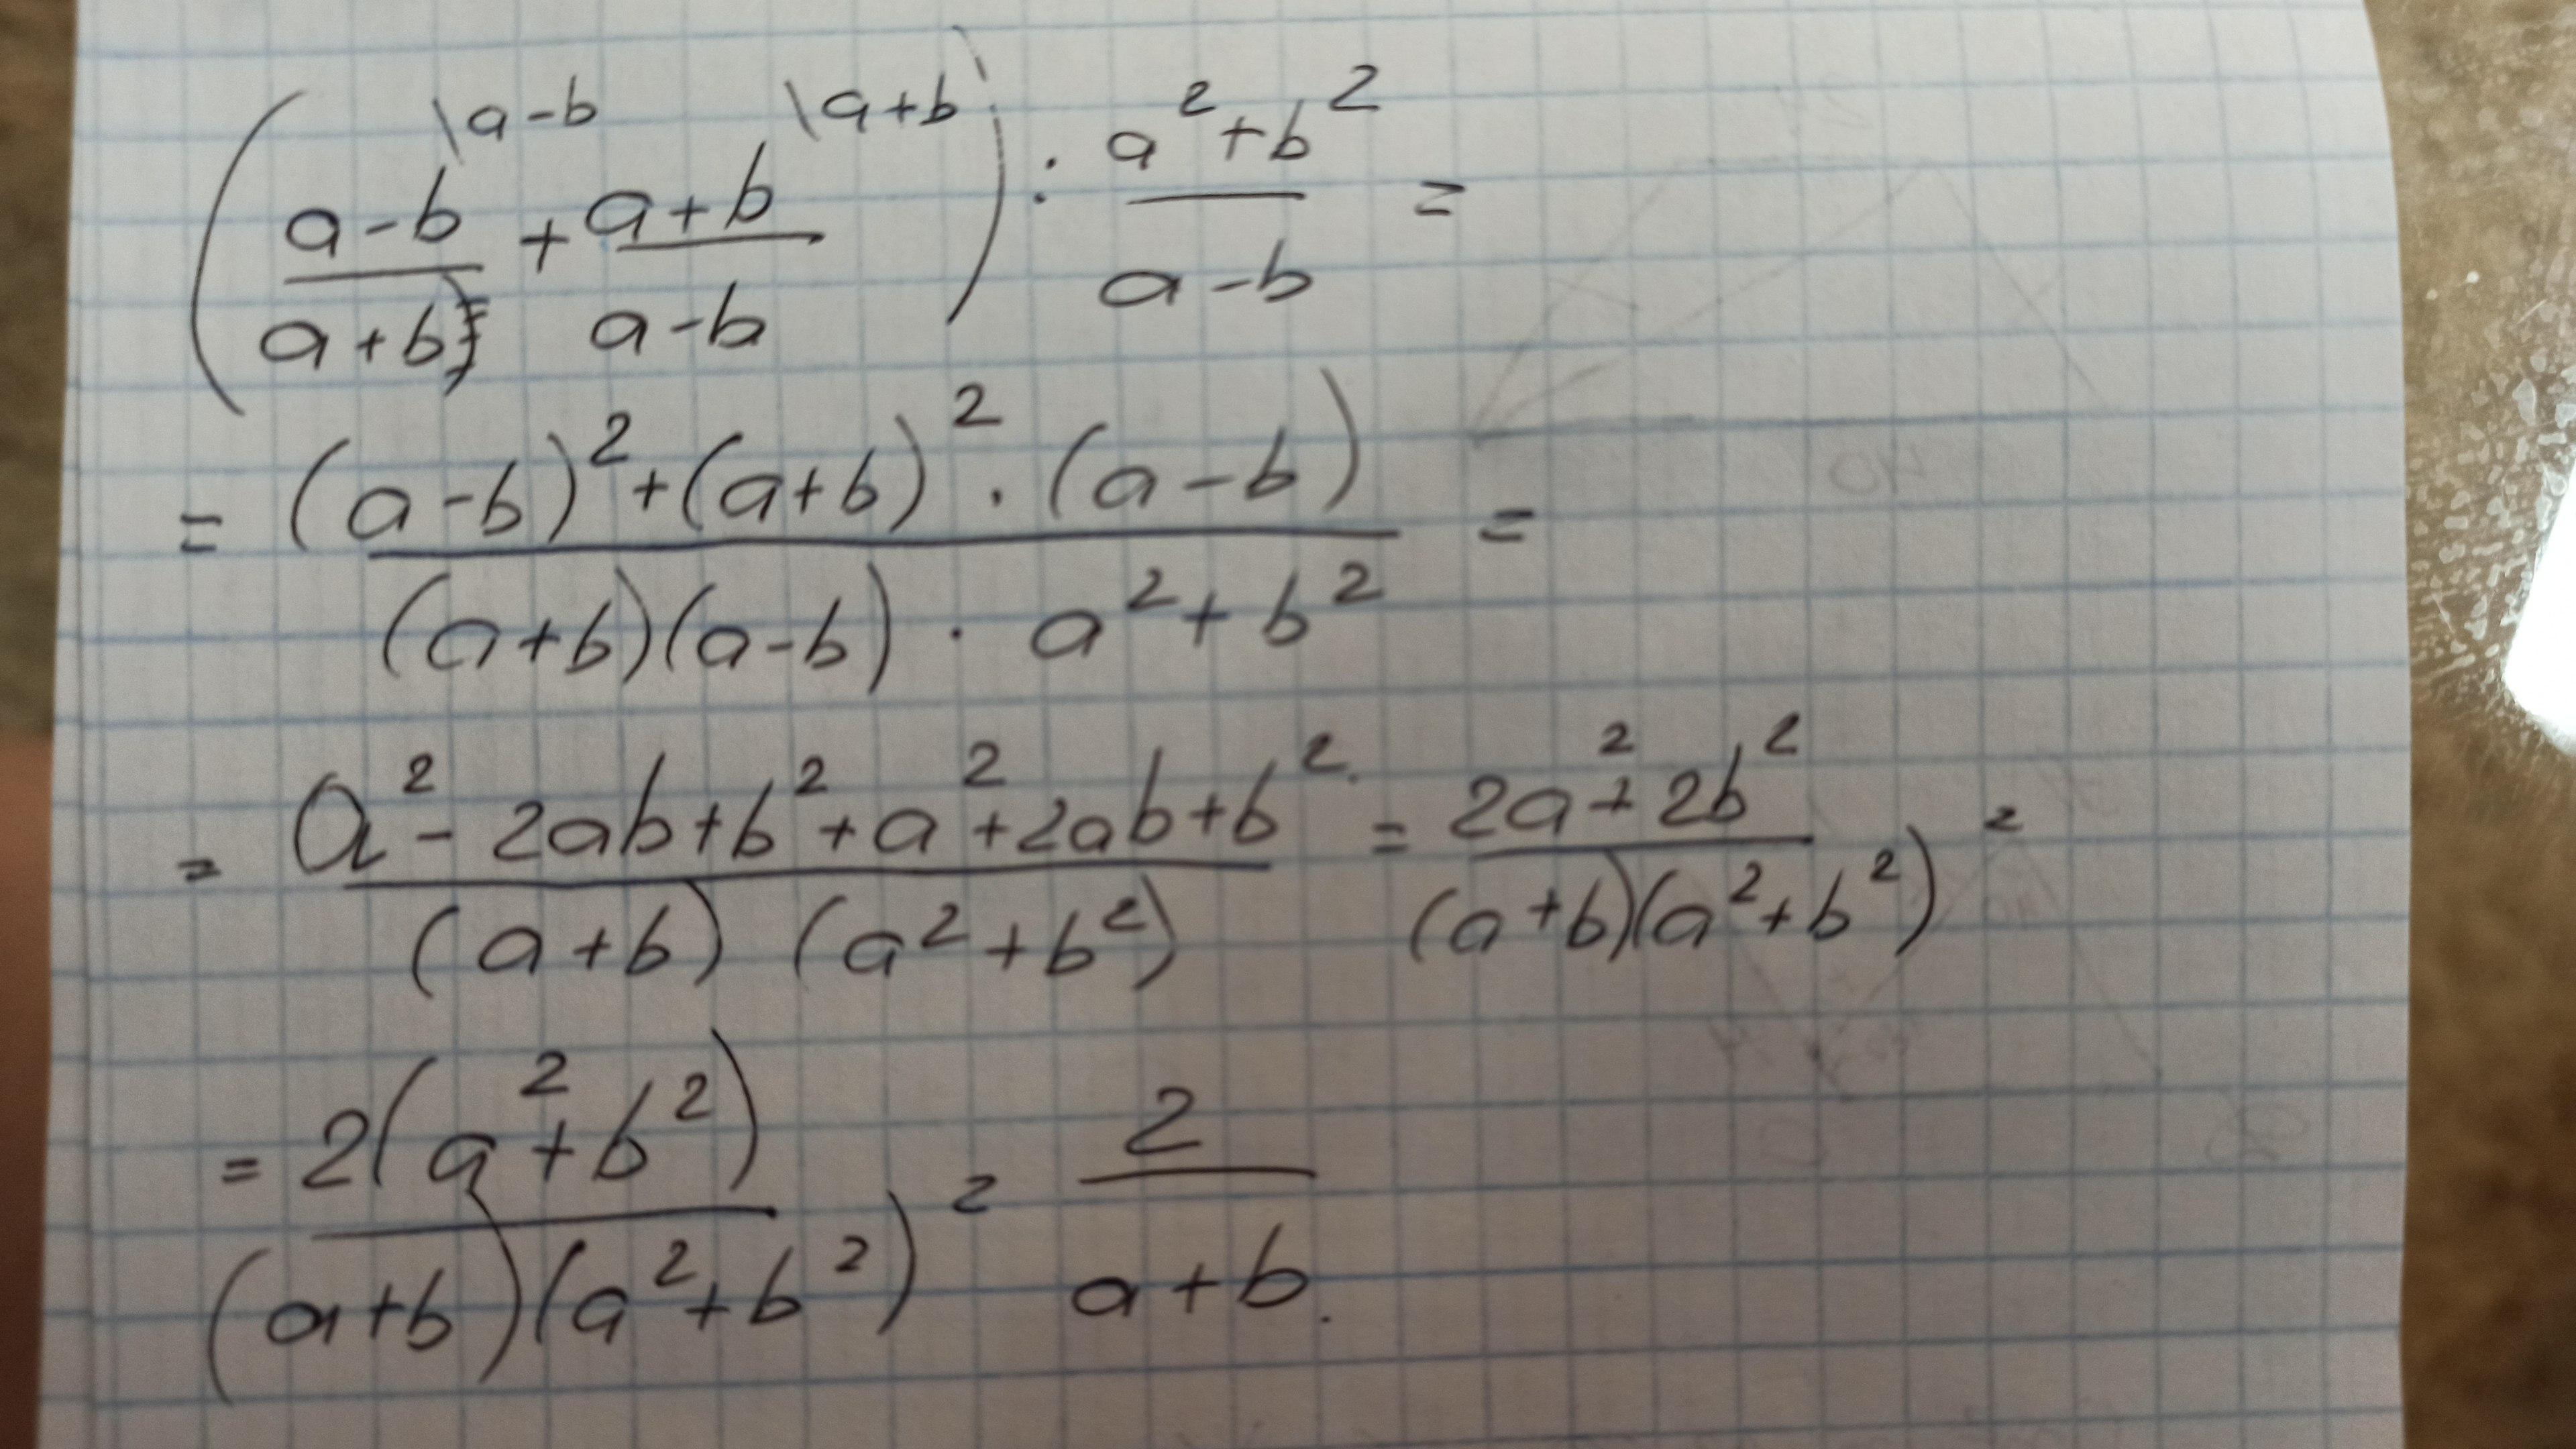 \a-b \a+b
( a-b/a+b + a+b/a-b ) : a²+b²/a-b =
= (a-b)²+(a+b)² · (a-b) / (a+b)(a-b) · a²+b² =
= a²-2ab+b²+a²+2ab+b² / (a+b) (a²+b²) = 2a²+2b² / (a+b)(a²+b²) =
= 2(a²+b²) / (a+b)(a²+b²) = 2 / a+b.